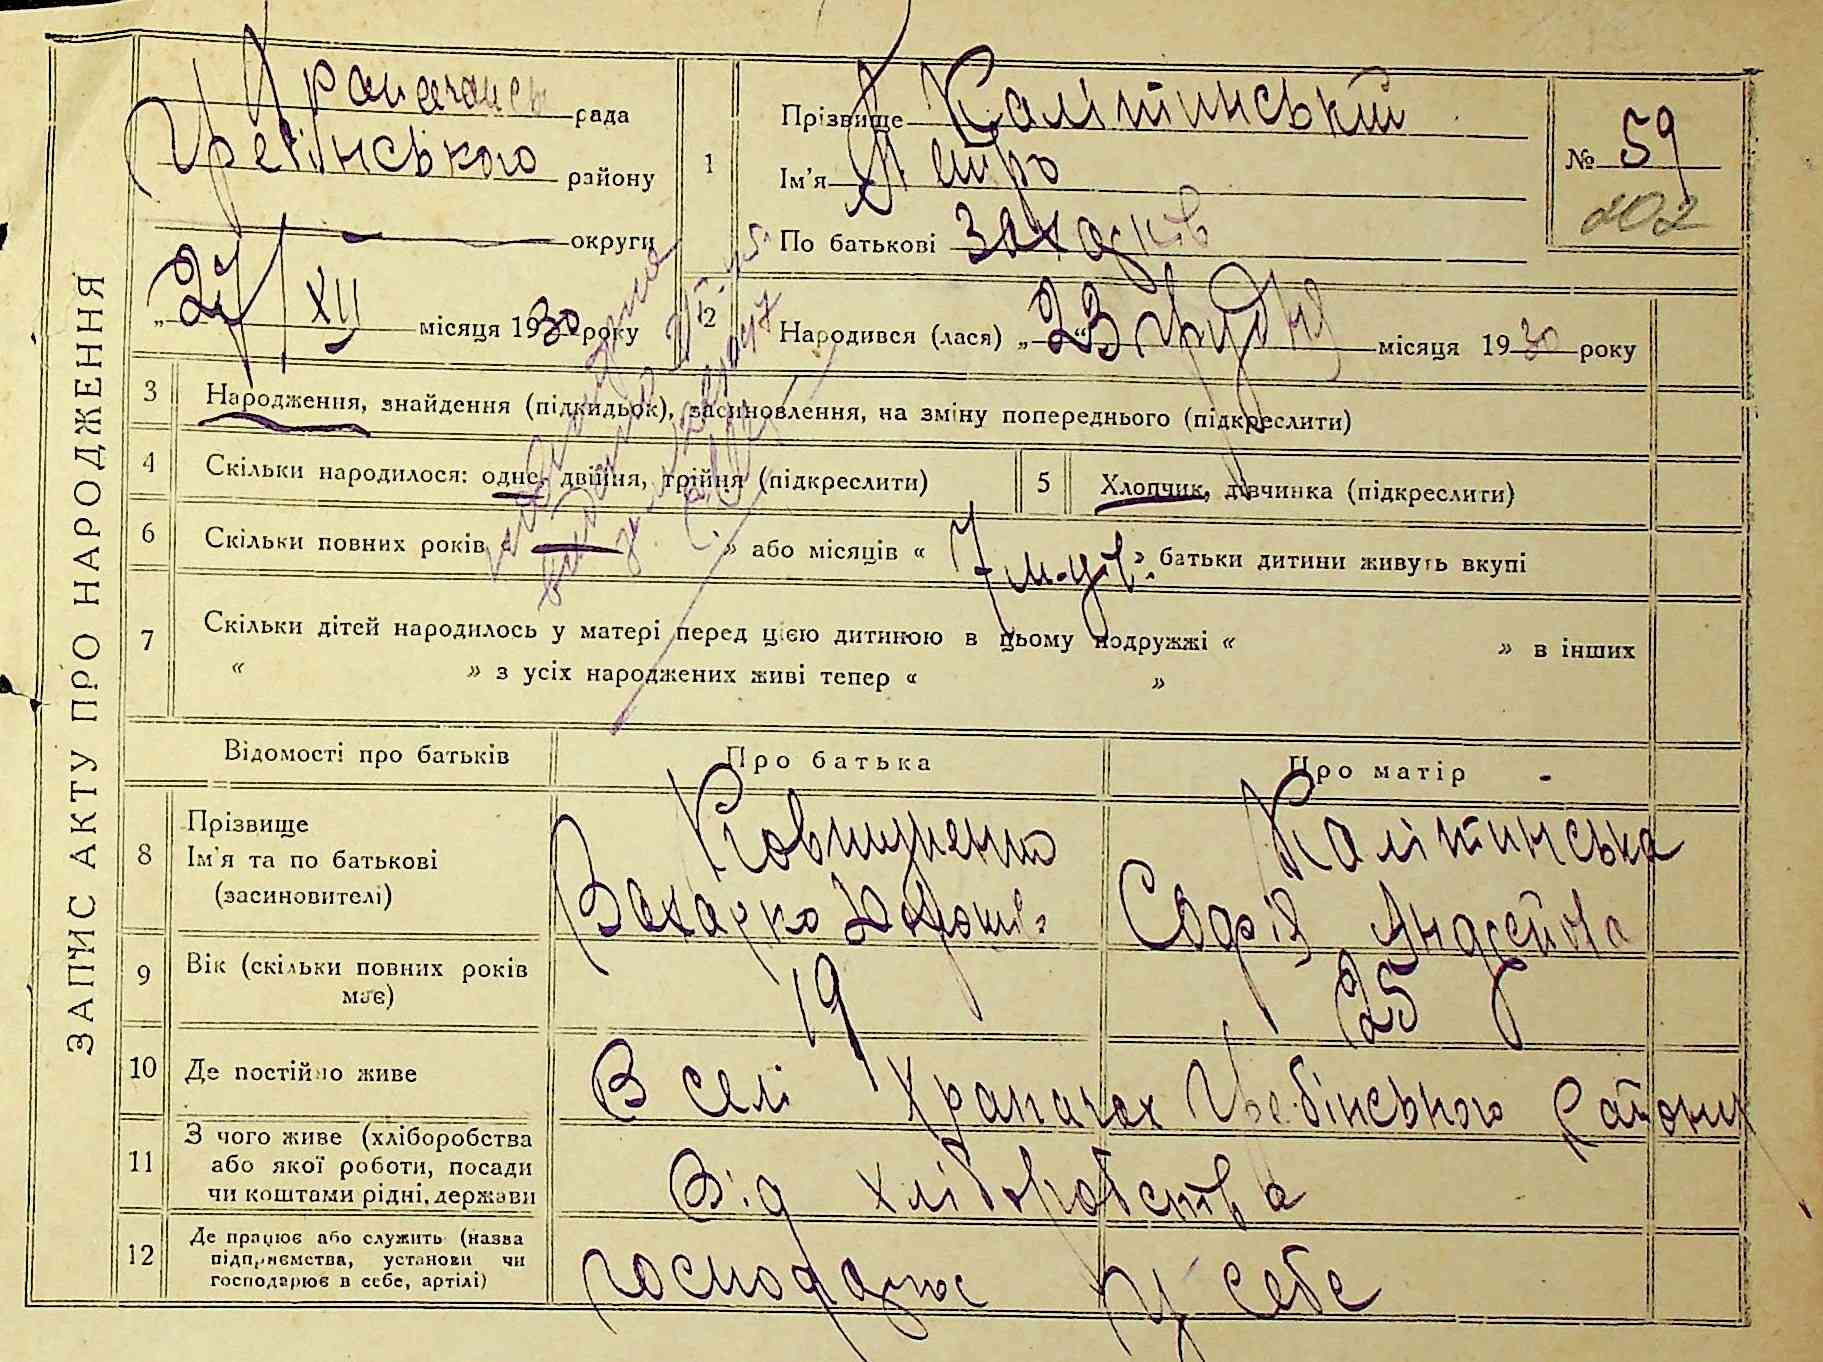 ЗАПИС АКТУ ПРО НАРОДЖЕННЯ
Храпачансь рада
Гребінського району
округи
„27/XII місяця 1930 року
1 Прізвище Калітинський
Ім'я Петро
По батькові Захарків
№ 59
202
2 Народився (лася) „23“ грудня місяця 1930 року
3 Народження, знайдення (підкидьок), засиновлення, на зміну попереднього (підкреслити)
4 Скільки народилося: одне, двійня, трійня (підкреслити)
5 Хлопчик, дівчинка (підкреслити)
6 Скільки повних років « — » або місяців « 7 м-ців » батьки дитини живуть вкупі
7 Скільки дітей народилось у матері перед цією дитиною в цьому подружжі « » в інших
« » з усіх народжених живі тепер « »
Відомості про батьків Про батька Про матір
8 Прізвище
Ім'я та по батькові
(засиновителі)
Калітинська
Захарко
Софія Андрейовна
9 Вік (скільки повних років
має)
19 25
10 Де постійно живе В селі Храпачах Гребінського району
11 З чого живе (хліборобства
або якої роботи, посади
чи коштами рідні, держави
Від хліборобства
12 Де працює або служить (назва
підприємства, установи чи
господарює в себе, артілі)
господарює у себе